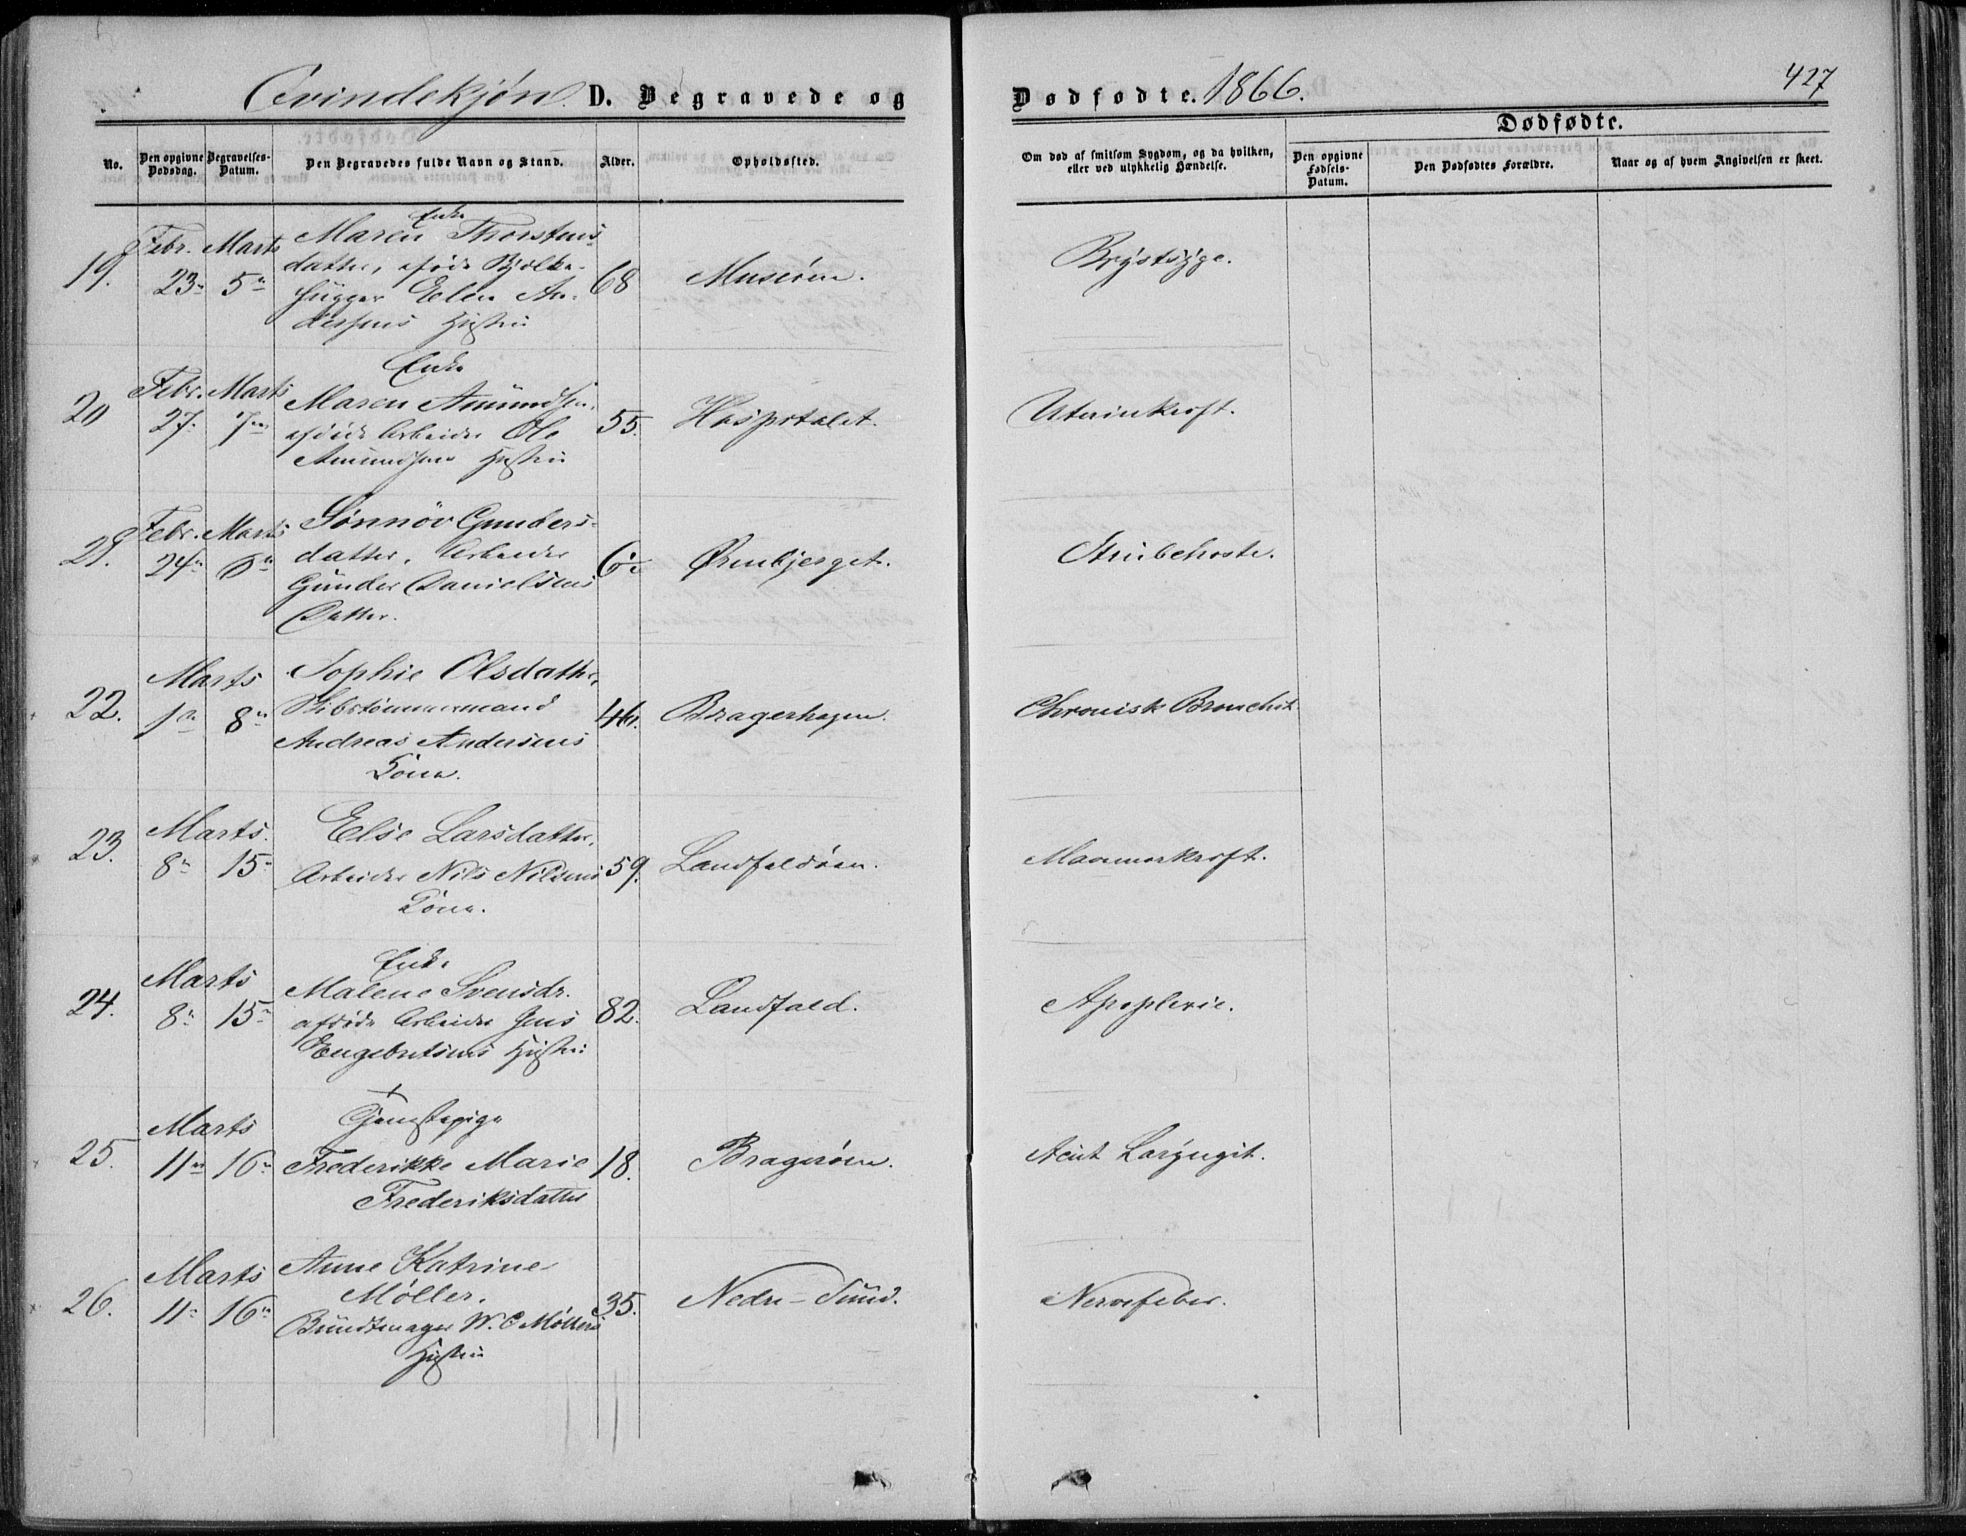 Qvindekjøn. D. Begravede og Dødfødte. 1866. 427
No.
Den opgivne Dødsdag.
Begravelses-Datum.
Den Begravedes fulde Navn og Stand.
Alder.
Opholdssted.
Om død af smitsom Sygdom, og da hvilken, eller ved ulykkelig Hændelse.
Dødfødte.
Den opgivne Fødsels-Datum.
Den Dødfødtes Forældre.
Naar og af hvem Angivelsen er skeet.
Enke
19. Febr. 23 Marts 5 Maren Thorstens-
datter, afdøde Bjelke-
hugger Elen An-
dersens Hustru
68 Muusøen. Brystsyge.
Enke
20 Febr. 27 Marts 7 Maren Amundsen,
afdøde Arbeider Ole
Amundsens Hustru
55. Hospitalet. Uterinkræft.
Febr. 24 Marts 6 Sønnöv Gunders-
datter, Arbeider
Gunder Danielsens
Datter.
Ørenbjerget. Strubehoste.
22. Marts 1 8 Sophie Olsdatter,
Skibstømmermand
Andreas Andersens
Kone.
46. Bragerhagen. Chronisk Bronchit
23. Marts 8 15 Else Larsdatter,
Arbeider Nils Nilsens
Kone.
59. Landfaldøen. Mammarkræft.
Enke
24. Marts 8 15 Malene Svensdr.
afdøde Arbeider Jens
Engebretsens Hustru
82. Landfald. Apoplexie.
Tjenestepige
25. Marts 11 16 Frederikke Marie
Frederiksdatter
18. Bragerøen. Acut Laryngit.
26. Marts 11 16 Anne Katrine
Møller.
Bundtmager W. C Møllers
Hustru
35. Nedre-Sund. Nervefeber.